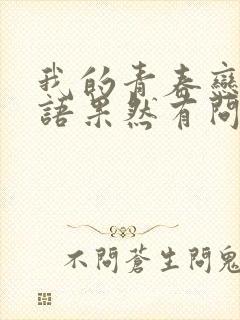 我的青春戀
語果然有問
不問蒼生問鬼